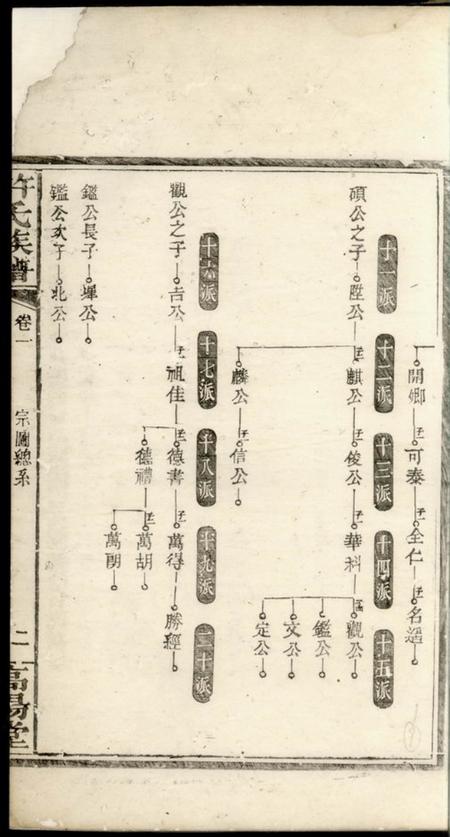 開鄉 可泰 全仁 名遥
十一派 十二派 十三派 十四派 十五派
碩公之子 陞公 子二 麒公 子 俊公 子 華科 子四 觀公
鑑公
文公
定公
麟公 子 信公
十六派 十七派 十八派 十九派 二十派
觀公之子 吉公 子 祖佳 子二 德書 子 萬得 勝經
德禮 子二 萬胡
萬朗
鑑公長子 墠公
鑑公次子 北公
許氏族譜 卷一 宗圖總系 二 高陽堂